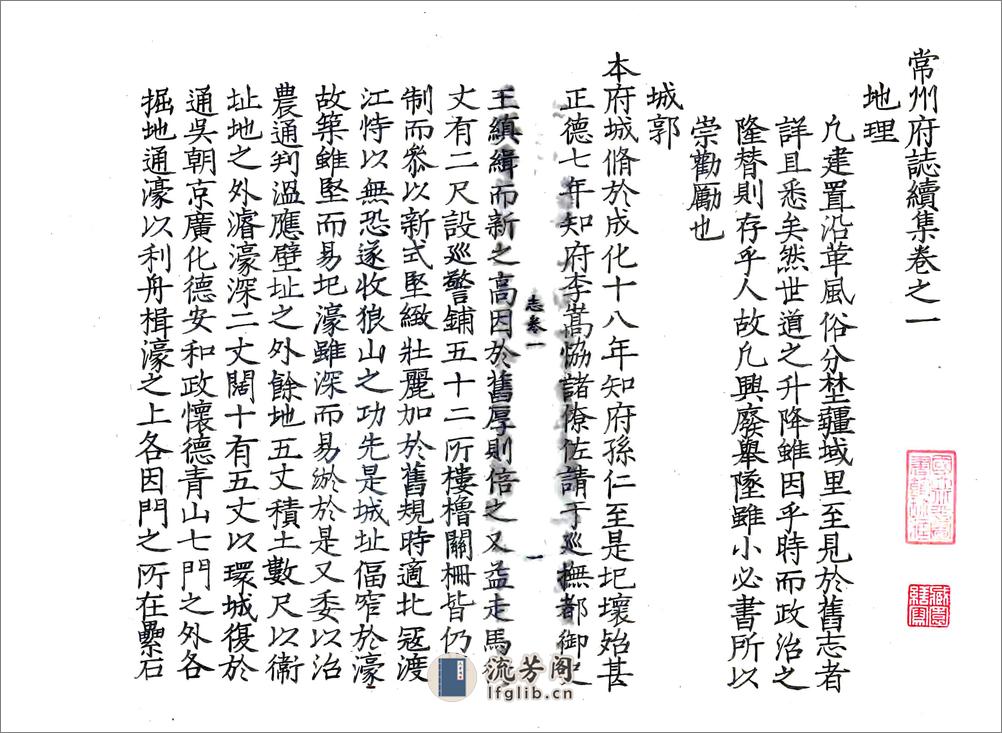 常州府誌續集卷之一
地理
凡建置沿革風俗分埜疆域里至見於舊志者
詳且悉矣然世道之升降雖因乎時而政治之
隆替則存乎人故凡興廢舉墜雖小必書所以
崇勸勵也
城郭
本府城脩於成化十八年知府孫仁至是圮壞殆甚
正德七年知府李嵩恊諸僚佐請于巡撫都御史
志卷一
一
王縝緝而新之高因於舊厚則倍之又益走馬
丈有二尺設巡警鋪五十二所樓櫓關柵皆仍
制而叅以新式堅緻壯麗加於舊規時適北冦渡
江恃以無恐遂收狼山之功先是城址偪窄於濠
故築雖堅而易圮濠雖深而易淤於是又委以治
農通判溫應壁址之外餘地五丈積土數尺以衛
址地之外濬濠深二丈闊十有五丈以環城復於
通吳朝京廣化德安和政懷德青山七門之外各
掘地通濠以利舟楫濠之上各因門之所在壘石
流芳阁
lfglib.cn